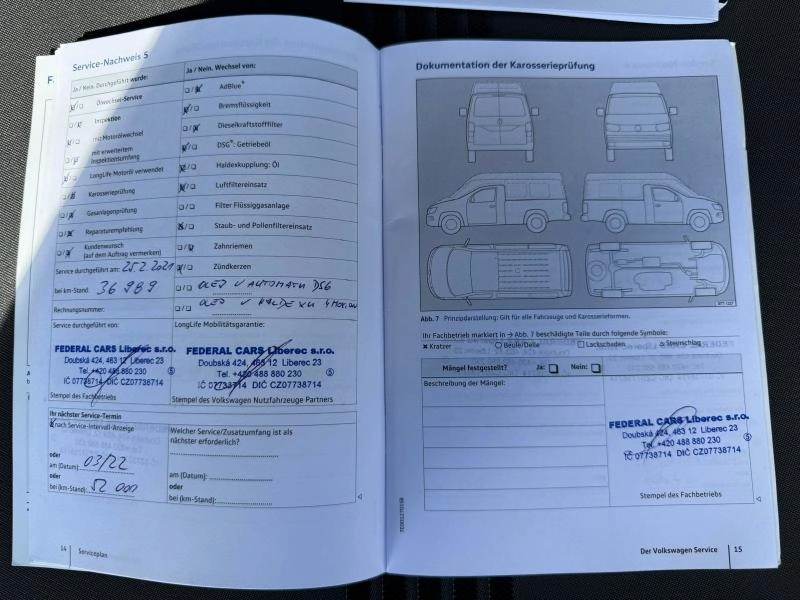 Service-Nachweis 5
Ja / Nein. Durchgeführt wurde:
Ölwechsel-Service
Inspektion
mit Motorölwechsel
mit erweitertem
Inspektionsumfang
LongLife Motoröl verwendet
Karosserieprüfung
Gasanlagenprüfung
Reparaturempfehlung
Kundenwunsch
(auf dem Auftrag vermerken)
Service durchgeführt am: 25.2.2021
bei km-Stand: 36 989
Rechnungsnummer:
Ja / Nein. Wechsel von:
AdBlue®
Bremsflüssigkeit
Dieselkraftstofffilter
DSG®: Getriebeöl
Haldexkupplung: Öl
Luftfiltereinsatz
Filter Flüssiggasanlage
Staub- und Pollenfiltereinsatz
Zahnriemen
Zündkerzen
OLEJ V AUTOMATU DSG
OLEJ V HALDEXU 4MOTION
Service durchgeführt von:
FEDERAL CARS Liberec s.r.o.
Doubská 424, 463 12 Liberec 23
Tel. +420 488 880 230
IČ 07738714 DIČ CZ07738714
⑤
Stempel des Fachbetriebs
LongLife Mobilitätsgarantie:
FEDERAL CARS Liberec s.r.o.
Doubská 424, 463 12 Liberec 23
Tel. +420 488 880 230
IČ 07738714 DIČ CZ07738714
⑤
Stempel des Volkswagen Nutzfahrzeuge Partners
Ihr nächster Service-Termin
nach Service-Intervall-Anzeige
oder
am (Datum): 03/22
oder
bei (km-Stand): 52 000
Welcher Service/Zusatzumfang ist als
nächster erforderlich?
am (Datum):
oder
bei (km-Stand):
14
Serviceplan
Dokumentation der Karosserieprüfung
Abb. 7 Prinzipdarstellung: Gilt für alle Fahrzeuge und Karosserieformen.
Ihr Fachbetrieb markiert in → Abb. 7 beschädigte Teile durch folgende Symbole:
Kratzer
Beule/Delle
Lackschaden
Steinschlag
Mängel festgestellt?
Ja:
Nein:
Beschreibung der Mängel:
FEDERAL CARS Liberec s.r.o.
Doubská 424, 463 12 Liberec 23
Tel. +420 488 880 230
IČ 07738714 DIČ CZ07738714
⑤
Stempel des Fachbetriebs
Der Volkswagen Service
15